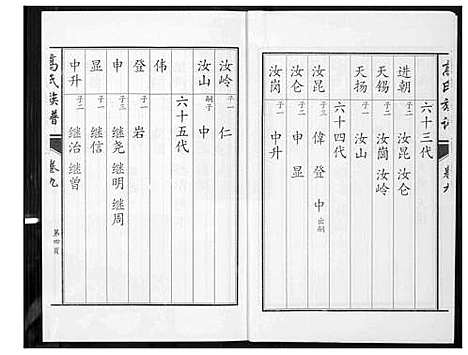 高氏族谱 卷九
六十三代
进朝 子二 汝昆 汝仑
天锡 子二 汝岗 汝岭
天扬 子一 汝山
六十四代
汝昆 子三 偉 登 中 出嗣
汝仑 子二 申 显
汝岗 子一 中升
汝岭 子一 仁
汝山 嗣子 中
六十五代
伟
登 子一 岩
申 子三 继尧 继明 继周
显 子一 继信
中升 子二 继治 继曾
高氏族普 卷九
第四页